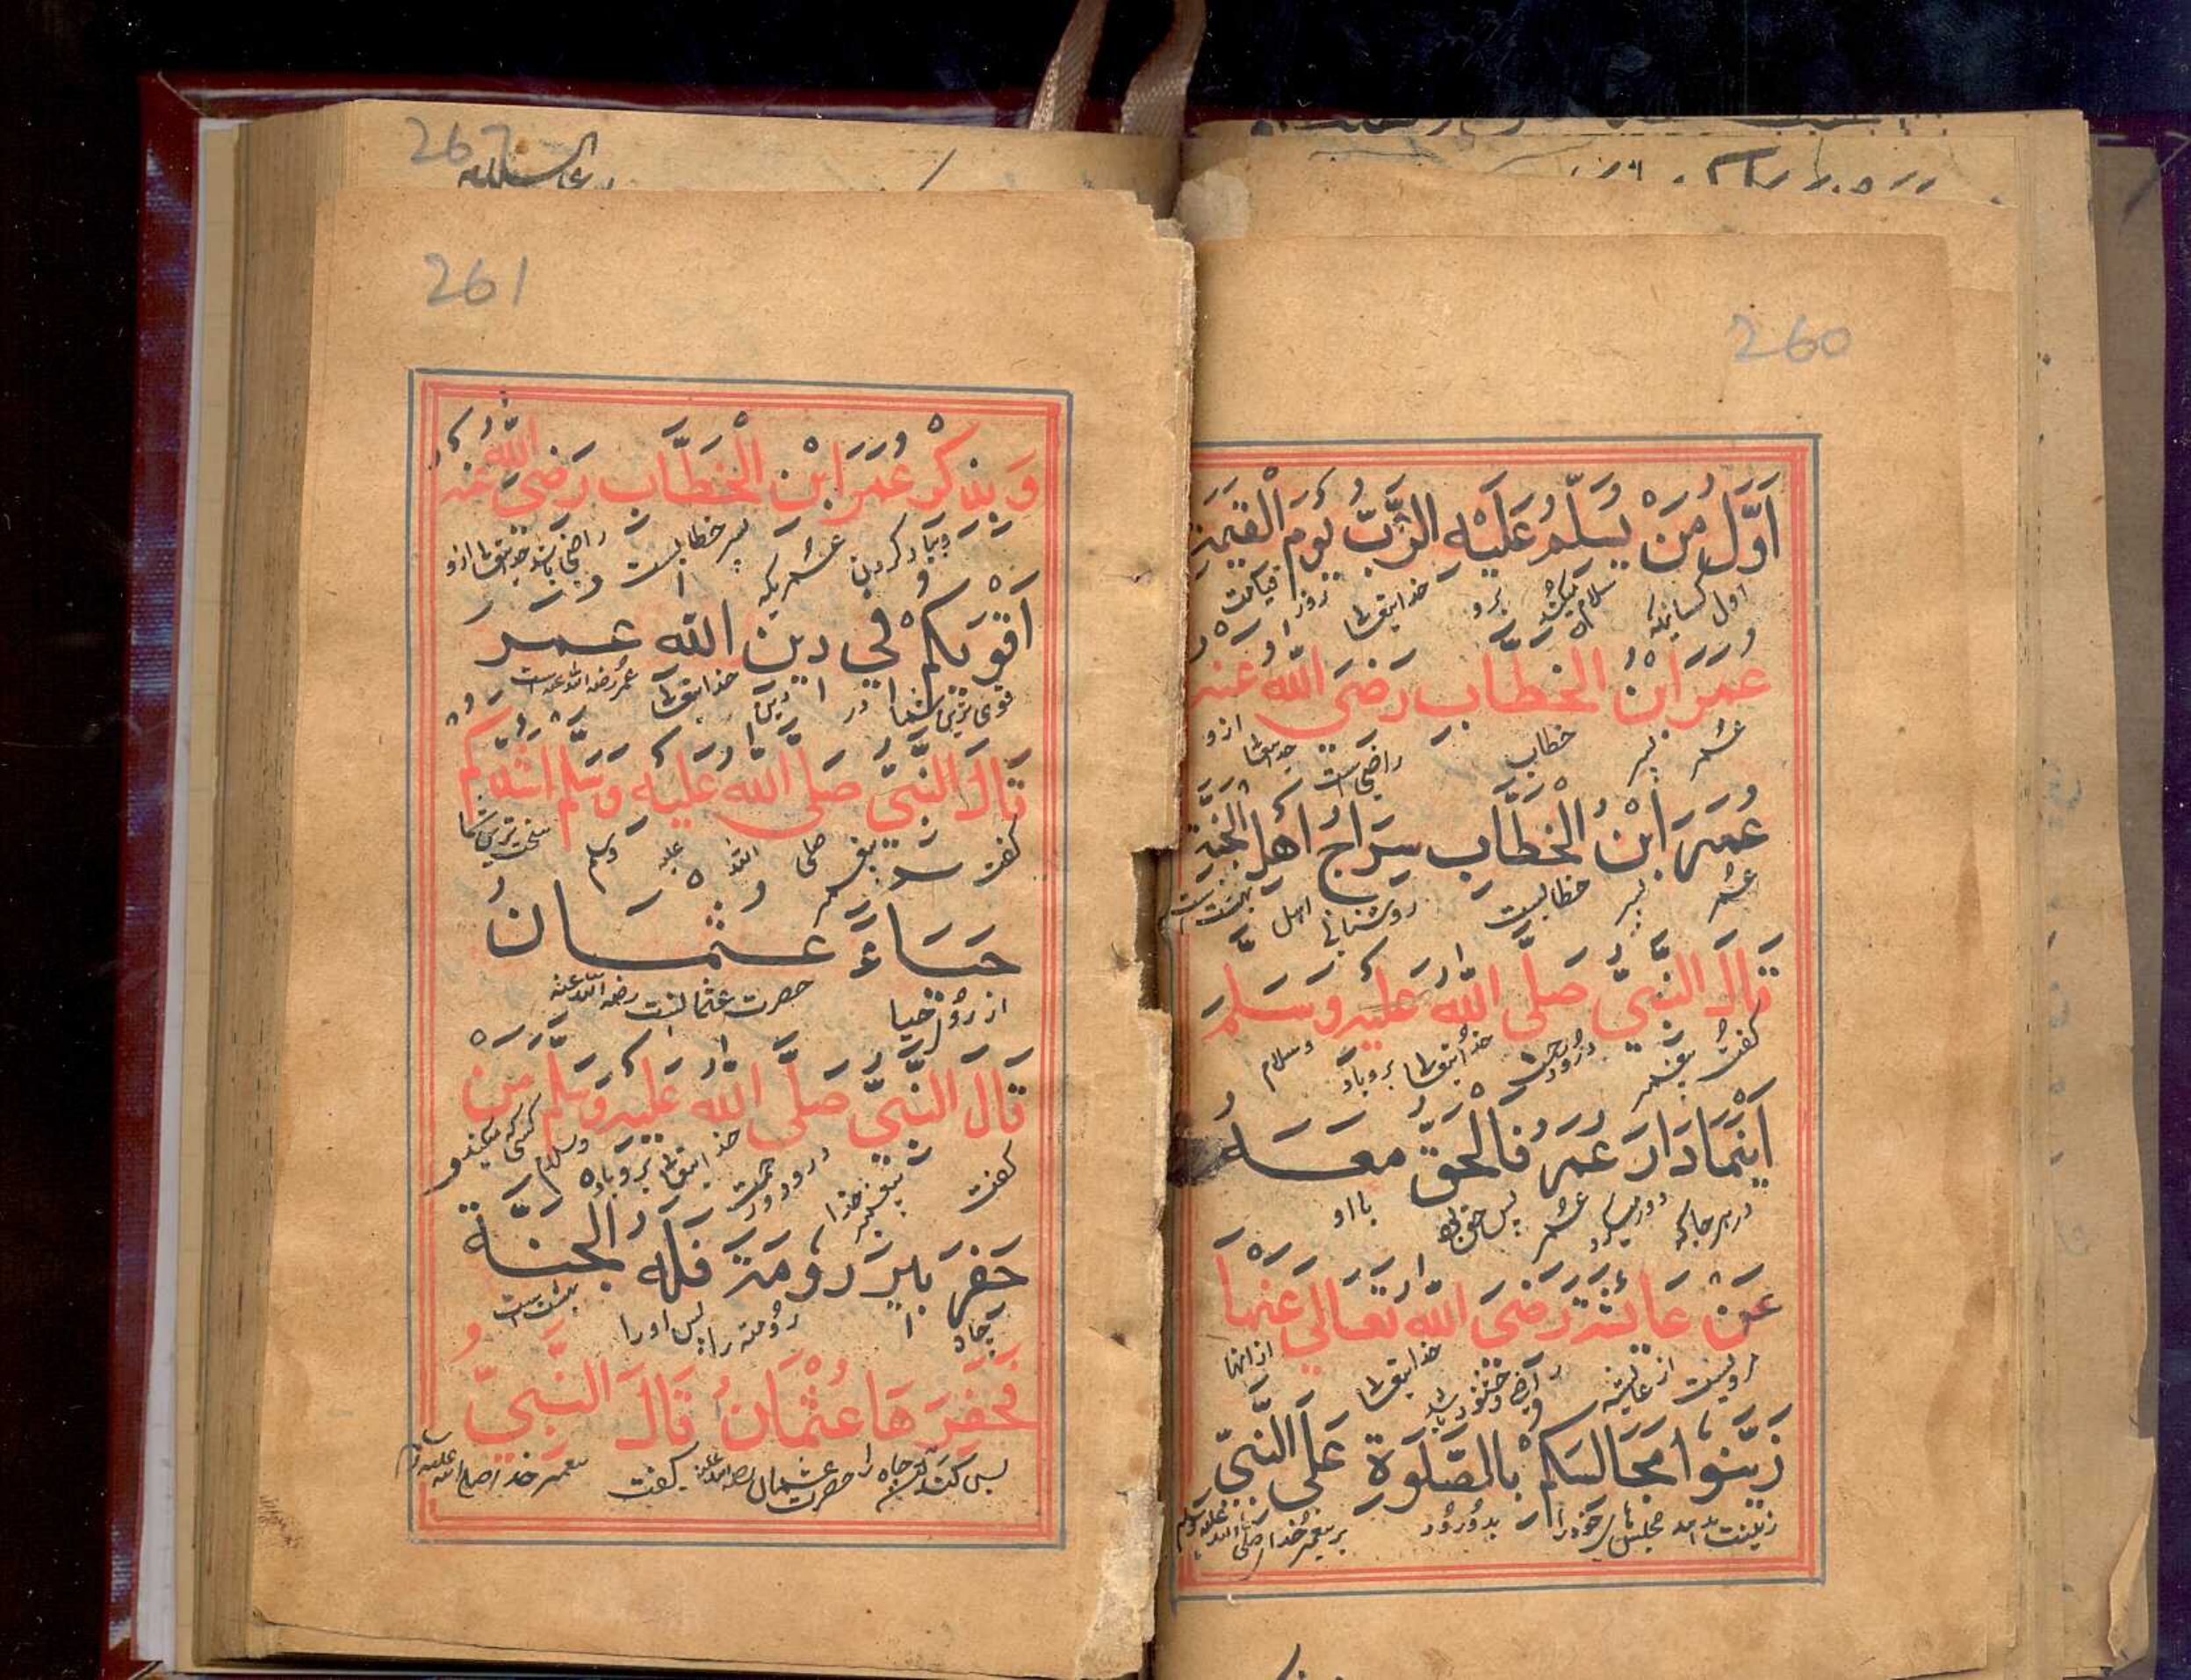 260
اَوَّلُ مَنْ يُسَلِّمُ عَلَيْهِ الرَّبُّ يَوْمَ الْقِيٰمَةِ
اول کسانیکه سلام میکند برو خدایتعالی روز قیامت
عُمَرَ ابْنُ الْخَطَّابِ رَضِيَ اللّٰهُ عَنْهُ
عمر پسر خطاب راضی است خدایتعالی ازو
عُمَرَ ابْنُ الْخَطَّابِ سِرَاجُ اَهْلِ الْجَنَّةِ
عمر پسر خطابست روشنائی اهل بهشت است
قَالَ النَّبِيُّ صَلَّى اللّٰهُ عَلَيْهِ وَسَلَّمَ
گفت پیغمبر درود خدایتعالی بروباد وسلام
اَيْنَمَا دَارَ عُمَرُ فَالْحَقُّ مَعَهُ
در هر جا که دور میکرد عمر پس حق با او
عَنْ عَايِشَةَ رَضِيَ اللّٰهُ تَعَالٰي عَنْهَا
رویست از عایشه خدایتعالی از انها
زَيِّنُوْا مَجَالِسَكُمْ بِالصَّلٰوةِ عَلَي النَّبِيِّ
زینت بدهید مجلس خود را بدرود بر پیغمبر خدا صلی الله علیه وسلم
267
261
وَبِذِكْرِ عُمَرَ ابْنِ الْخَطَّابِ رَضِيَ اللّٰهُ عَنْهُ
وبیاد کردن عمریکه پسر خطابست راضی باشد خدایتعالی ازو
اَقْوٰىكُمْ فِي دِيْنِ اللّٰهِ عُمَرُ
قوی ترین شما در دین خدایتعالی عمر رضی الله عنه است
قَالَ النَّبِيُّ صَلَّى اللّٰهُ عَلَيْهِ وَسَلَّمَ اَشَدُّكُمْ
گفت پیغمبر صلی الله علیه وسلم سخت ترین شما
حَيَاءً عُثْمَانُ
از روی حیا حضرت عثمانست رضی الله عنه
قَالَ النَّبِيُّ صَلَّى اللّٰهُ عَلَيْهِ وَسَلَّمَ مَنْ
گفت پیغمبر خدا درود خدایتعالی بروباد وسلام کسی که میکند
حَفَرَ بِايْرَ رُوْمَةَ فَلَهُ الْجَنَّةُ
چاه رومته را پس اورا بهشت است
فَحَفَرَهَا عُثْمَانُ قَالَ النَّبِيُّ
پس کند چاه را حضرت عثمان رضی الله عنه گفت پیغمبر خدا صلی الله علیه وسلم